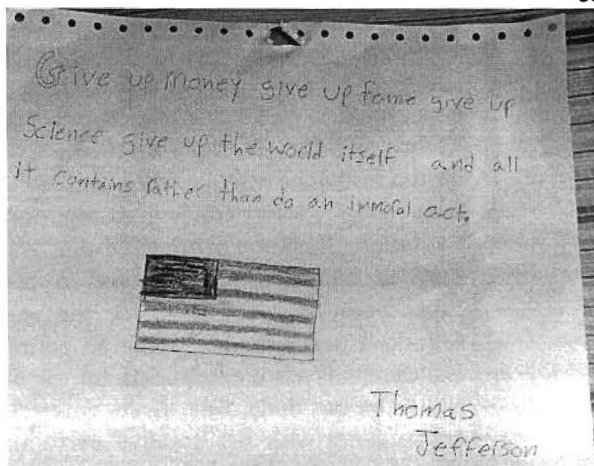 Give up Money give up fame give up
Science give up the World itself and all
it contains rather than do an immoral act.
Thomas
Jefferson